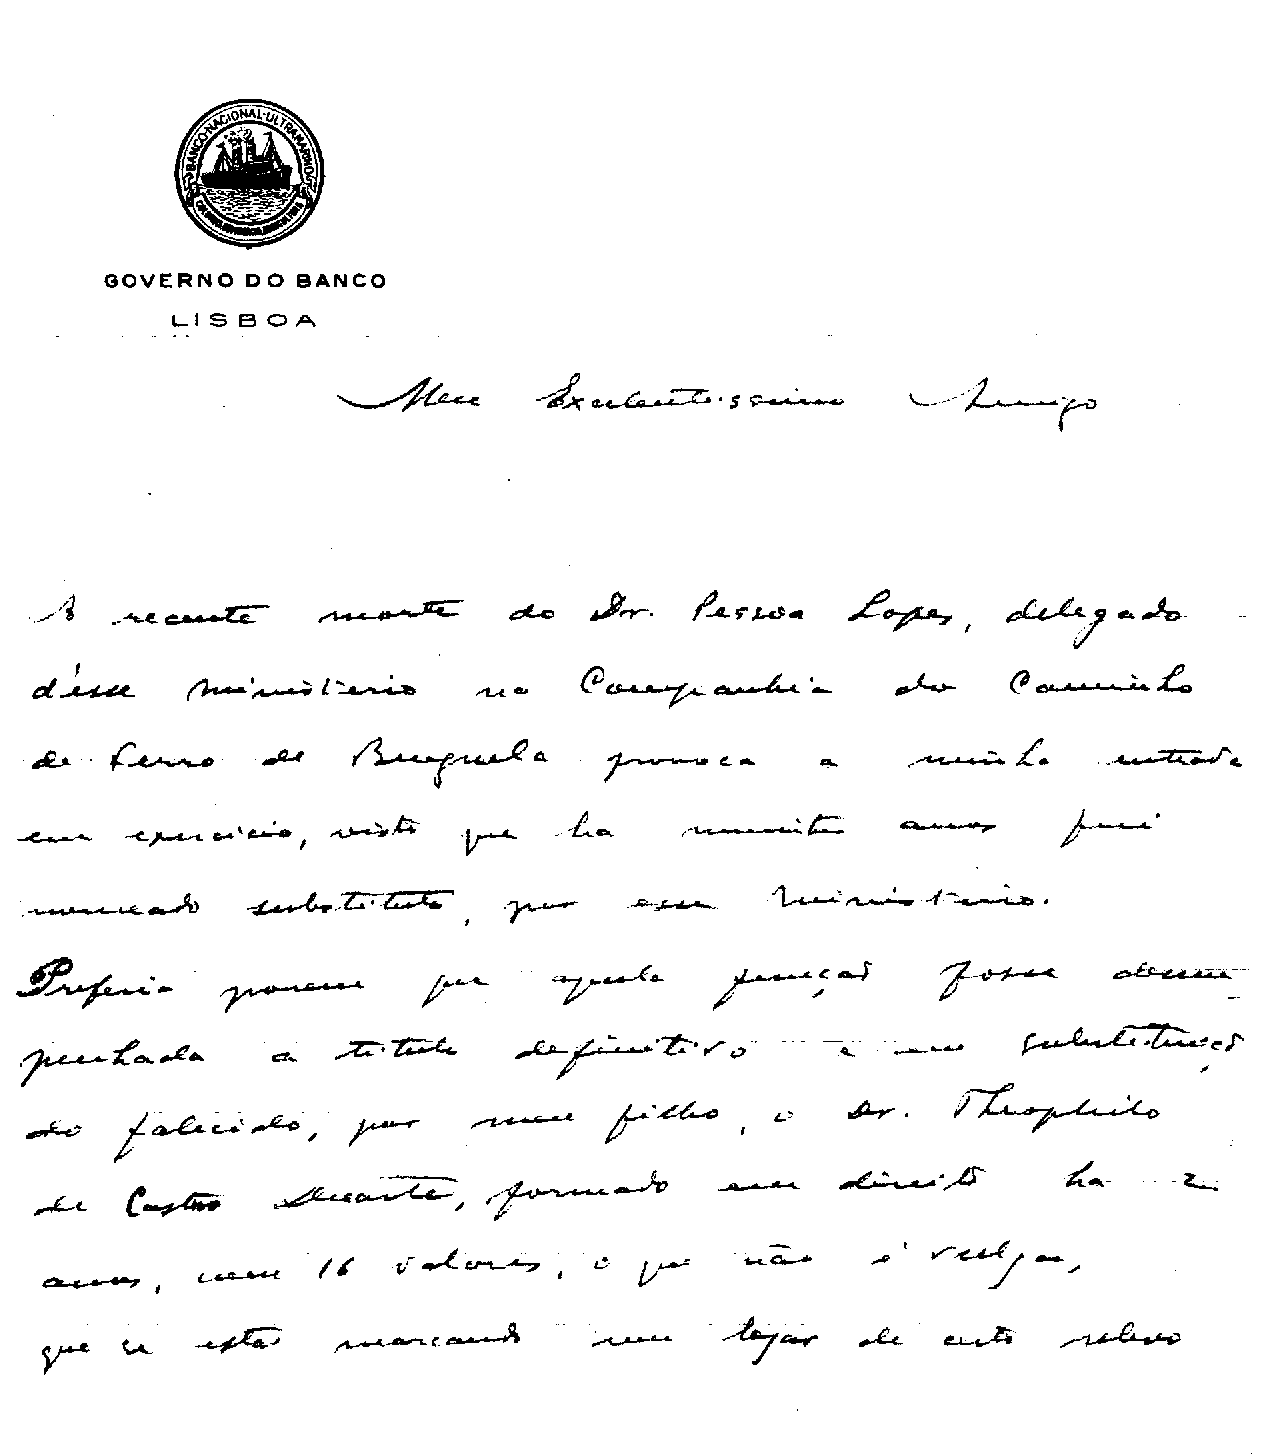 BANCO NACIONAL ULTRAMARINO
GOVERNO DO BANCO
LISBOA
Meu Excelentissimo Amigo
A recente morte do Dr. Pessoa Lopes, delegado
d'esse ministerio na Companhia do Caminho
de Ferro de Benguela provoca a minha entrada
em exercicio, visto que ha muitos anos fui
nomeado substituto, por esse Ministerio.
Preferia porem que aquela função fosse desem
penhada a titulo definitivo e em substituição
do falecido, por meu filho, o Dr. Theophilo
de Castro Duarte, formado em direito ha 2
anos, com 16 valores, o que não é vulgar,
que se está marcando um logar de certo relevo